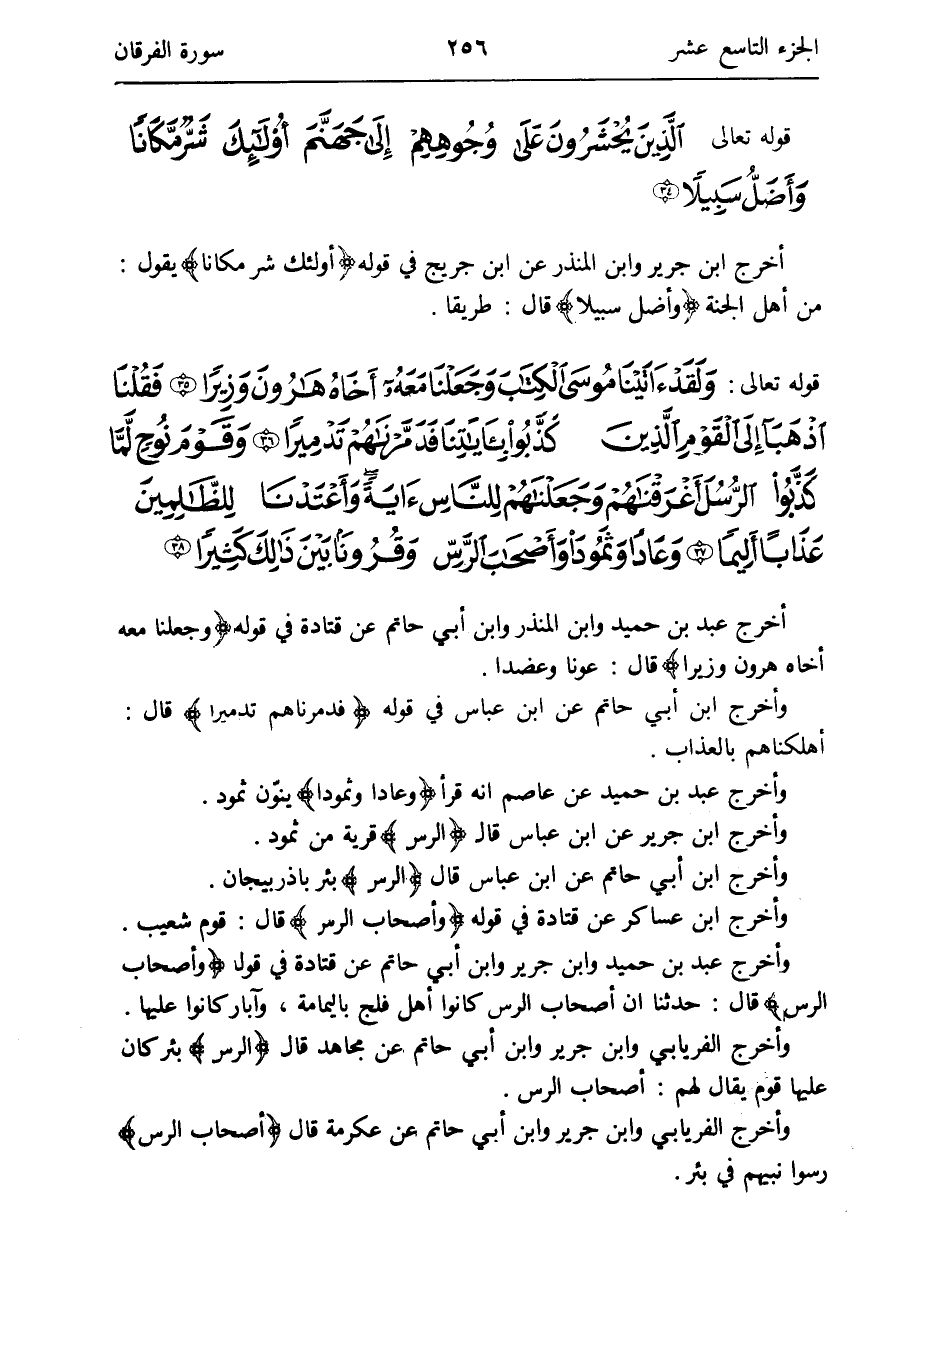 الجزء التاسع عشر ٢٥٦ سورة الفرقان
قوله تعالى ٱلَّذِينَ يُحْشَرُونَ عَلَىٰ وُجُوهِهِمْ إِلَىٰ جَهَنَّمَ أُو۟لَٰٓئِكَ شَرٌّ مَّكَانًا
وَأَضَلُّ سَبِيلًا ٣٤
أخرج ابن جرير وابن المنذر عن ابن جريج في قوله ﴿أولئك شر مكانا﴾ يقول :
من أهل الجنة ﴿وأضل سبيلا﴾ قال : طريقا .
قوله تعالى : وَلَقَدْ ءَاتَيْنَا مُوسَى ٱلْكِتَٰبَ وَجَعَلْنَا مَعَهُۥٓ أَخَاهُ هَٰرُونَ وَزِيرًا ٣٥ فَقُلْنَا
ٱذْهَبَآ إِلَى ٱلْقَوْمِ ٱلَّذِينَ كَذَّبُوا۟ بِـَٔايَٰتِنَا فَدَمَّرْنَٰهُمْ تَدْمِيرًا ٣٦ وَقَوْمَ نُوحٍ لَّمَّا
كَذَّبُوا۟ ٱلرُّسُلَ أَغْرَقْنَٰهُمْ وَجَعَلْنَٰهُمْ لِلنَّاسِ ءَايَةً ۖ وَأَعْتَدْنَا لِلظَّٰلِمِينَ
عَذَابًا أَلِيمًا ٣٧ وَعَادًا وَثَمُودَا۟ وَأَصْحَٰبَ ٱلرَّسِّ وَقُرُونًۢا بَيْنَ ذَٰلِكَ كَثِيرًا ٣٨
أخرج عبد بن حميد وابن المنذر وابن أبي حاتم عن قتادة في قوله ﴿وجعلنا معه
أخاه هرون وزيرا﴾ قال : عونا وعضدا .
وأخرج ابن أبي حاتم عن ابن عباس في قوله ﴿ فدمرناهم تدميرا ﴾ قال :
أهلكناهم بالعذاب .
وأخرج عبد بن حميد عن عاصم انه قرأ ﴿وعادا وثمودا﴾ ينوّن ثمود .
وأخرج ابن جرير عن ابن عباس قال ﴿الرس ﴾ قرية من ثمود .
وأخرج ابن أبي حاتم عن ابن عباس قال ﴿الرس ﴾ بئر باذربيجان .
وأخرج ابن عساكر عن قتادة في قوله ﴿وأصحاب الرس ﴾ قال : قوم شعيب .
وأخرج عبد بن حميد وابن جرير وابن أبي حاتم عن قتادة في قوله ﴿وأصحاب
الرس﴾ قال : حدثنا ان أصحاب الرس كانوا أهل فلج باليمامة ، وآبار كانوا عليها .
وأخرج الفريابي وابن جرير وابن أبي حاتم عن مجاهد قال ﴿الرس ﴾ بئر كان
عليها قوم يقال لهم : أصحاب الرس .
وأخرج الفريابي وابن جرير وابن أبي حاتم عن عكرمة قال ﴿أصحاب الرس﴾
رسوا نبيهم في بئر .